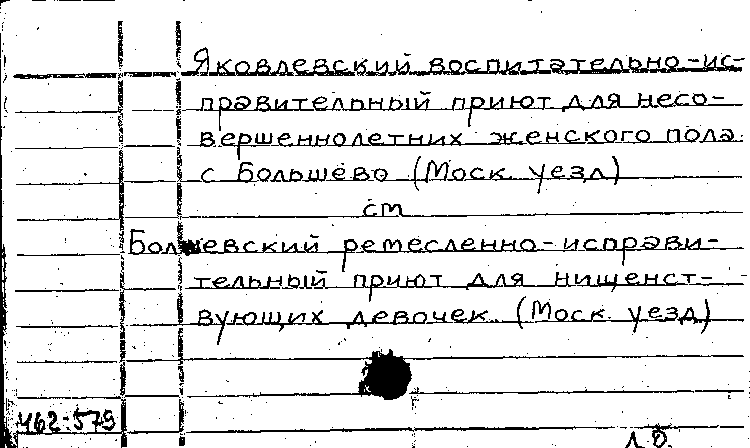 Яковлевский воспитательно-ис-
правительный приют для несо-
вершеннолетних женского пола
с Большево (Моск. уезд)
см
Болшевский ремесленно-исправи-
тельный приют для нищенст-
вующих девочек. (Моск. уезд)
462:579